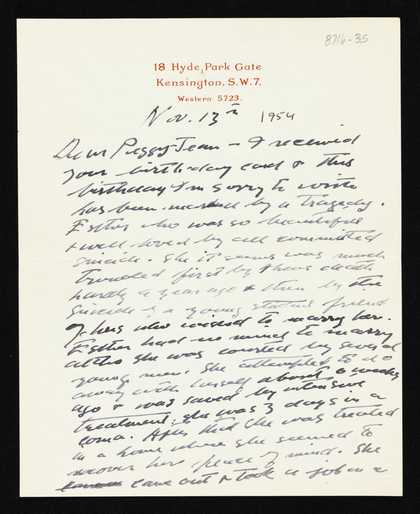 8716-35
18 Hyde Park Gate
Kensington. S.W.7.
Western 5723.
Nov. 13th 1954
Dear Peggy Jean – I received
your birthday card & this
birthday I'm sorry to write
has been marked by a tragedy.
Esther who was so beautiful
& well loved by all committed
suicide. She it seems was much
troubled first by death
hardly a year ago & then by the
suicide of a young friend
of hers who wished to marry her.
Esther had no mind to marry
altho she was courted by several
young men. She attempted to do
away with herself about 6 weeks
ago & was saved by intensive
treatment, she was 3 days in a
coma. After that she was treated
in a home where she seemed to
recover her peace of mind. She
came out & took a job in a